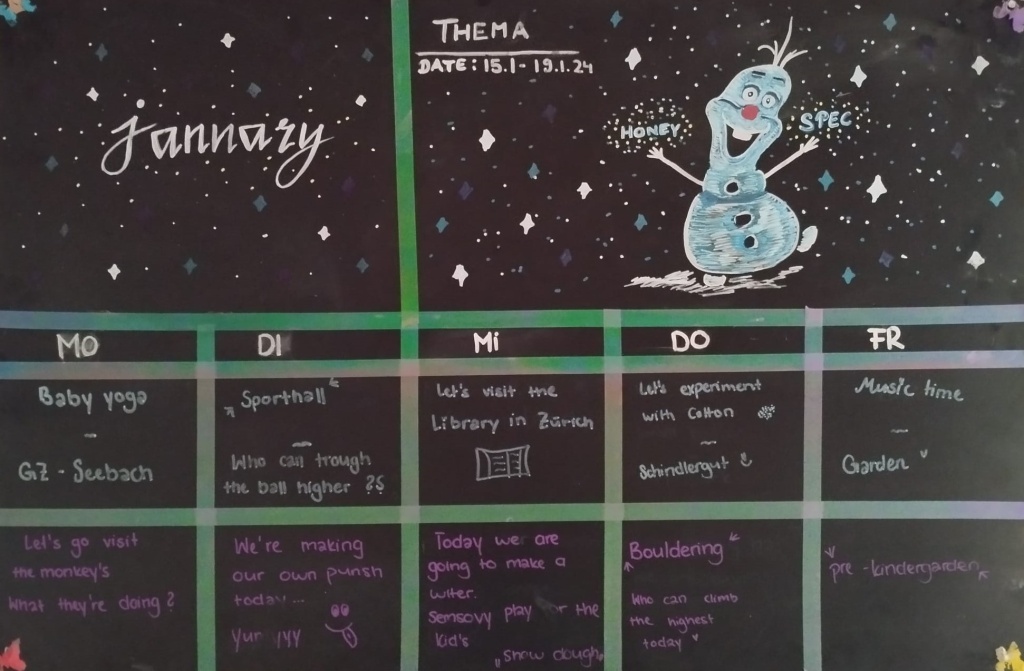 January
THEMA
DATE: 15.1 - 19.1.24
HONEY
SPEC
MO
DI
Mi
DO
FR
Baby yoga
-
GZ - Seebach
Sporthall
-
Who can trough
the ball higher ??
Let's visit the
Library in Zürich
Let's experiment
with Cotton
-
Schindlergut
Music time
-
Garden
Let's go visit
the monkey's
What they're doing?
We're making
our own punsh
today...
Yum yyy
Today we are
going to make a
Sensovy play for the
kid's
"snow dough"
Bouldering
Who can climb
the highest
today
pre-kindergarden